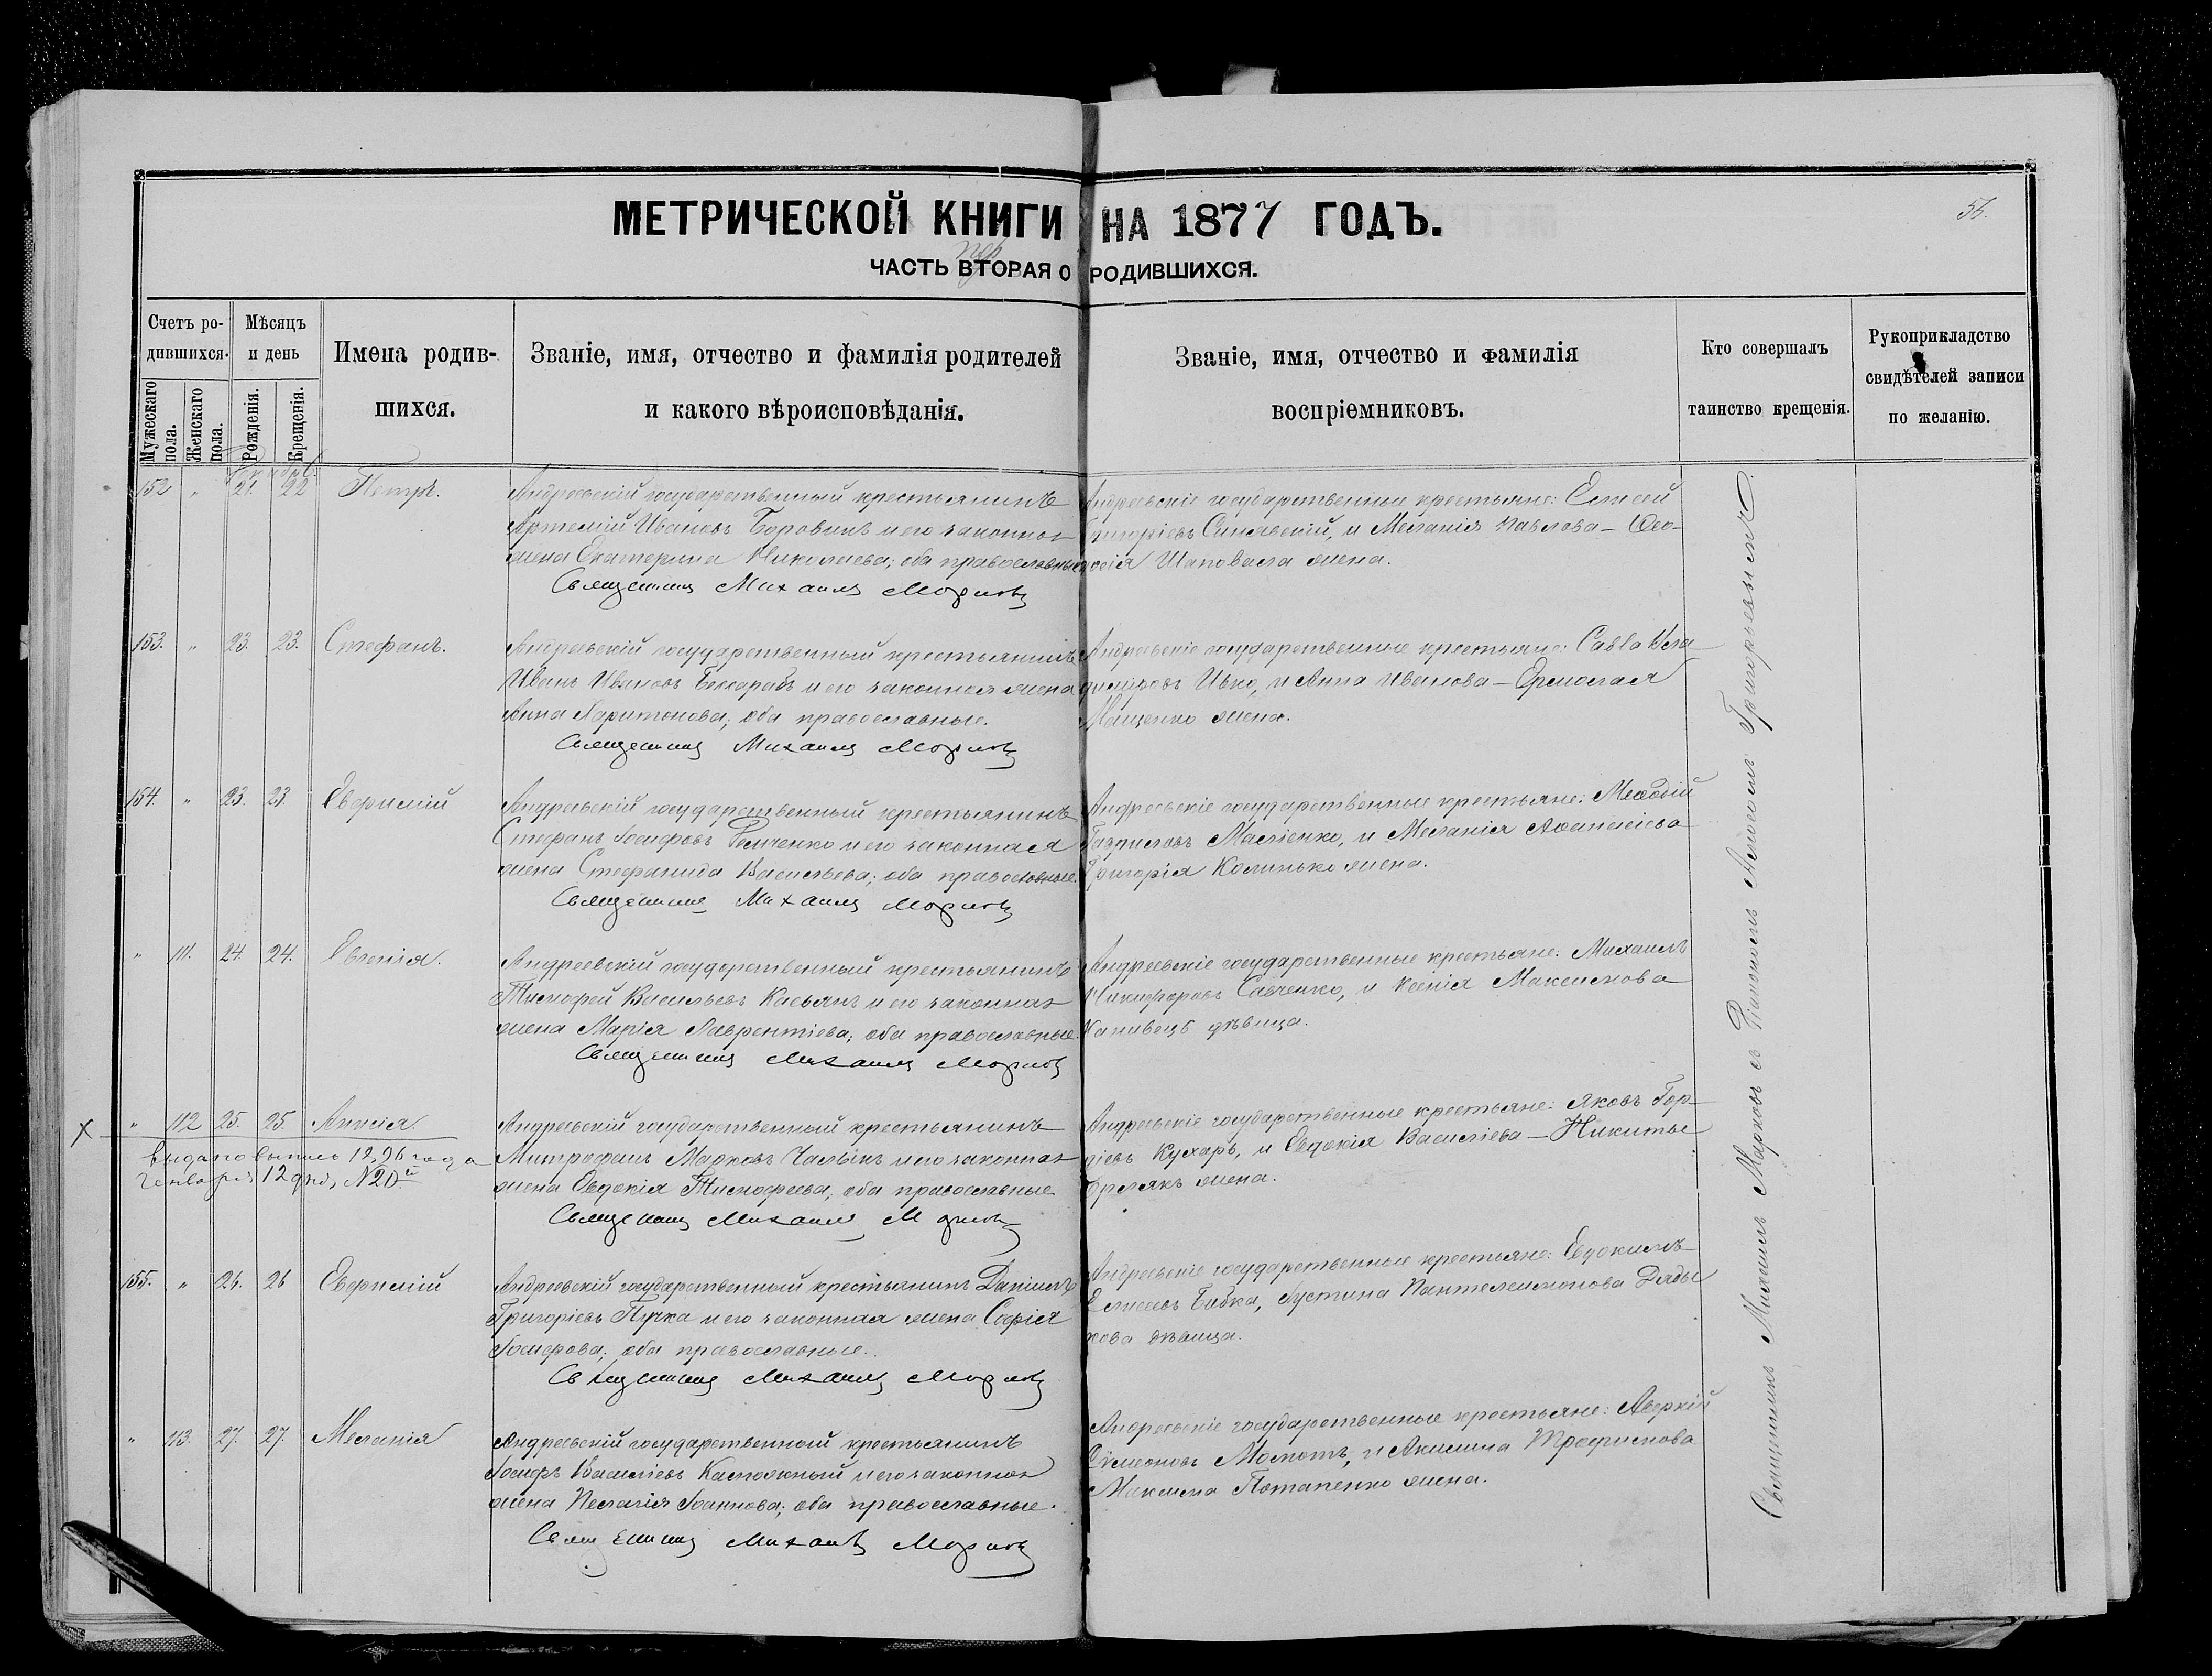 МЕТРИЧЕСКОЙ КНИГИ НА 1877 ГОДЪ.
ЧАСТЬ ВТОРАЯ О РОДИВШИХСЯ.
Счетъ ро-
дившихся.
Мужескаго пола.
Женскаго пола.
Мѣсяцъ
и день
Рожденія.
Крещенія.
Имена родив-
шихся.
Званіе, имя, отчество и фамилія родителей
и какого вѣроисповѣданія.
Званіе, имя, отчество и фамилія
воспріемниковъ.
Кто совершалъ
таинство крещенія.
Рукоприкладство
свидѣтелей записи
по желанію.
152 " 21. 22 Петръ.
Андреевскій государственный крестьянинъ
Артемій Ивановъ Боровикъ и его законная
жена Екатерина Николаева; оба православные
Священникъ Михаилъ Марковъ
Андреевскіе государственные крестьяне: Елисей
Григоріевъ Синявскій, и Меланія Павлова – Ѳео-
досія Шаповала жена.
153. " 23. 23. Стефанъ.
Андреевскій государственный крестьянинъ
Иванъ Ивановъ Бессарабъ и его законная жена
Анна Харитонова; оба православные.
Священникъ Михаилъ Марковъ
Андреевскіе государственные крестьяне: Савва Вла-
диміровъ Ивко, и Анна Иванова – Ермолая
Мащенко жена.
154. " 23. 23. Евфимій
Андреевскій государственный крестьянинъ
Стефанъ Іосифовъ и его законная
жена Стефанида Васильева; оба православные.
Священникъ Михаилъ Марковъ
Андреевскіе государственные крестьяне: Меѳодій
Гавриловъ Маслѣнко, и Меланія Аѳанасіева
Григорія Колинько жена.
" 111. 24. 24. Евгенія.
Андреевскій государственный крестьянинъ
Тимофей Васильевъ Касьянъ и его законная
жена Марія Лаврентіева; оба православные.
Священникъ Михаилъ Марковъ
Андреевскіе государственные крестьяне: Михаилъ
Никифоровъ Савченко, и Ксенія Максимова
Канивецъ дѣвица.
" 112 25. 25. Анисія.
Андреевскій государственный крестьянинъ
Митрофанъ Марковъ и его законная
жена Евдокія Тимофеева, оба православные
Священникъ Михаилъ Марковъ
выдано выпись 1896 года
Генваря 12 дня, №20й
Андреевскіе государственные крестьяне: Яковъ Гор-
діевъ Кухарь, и Евдокія Василіева – Никиты
жена.
155. " 26. 26 Евфимій
Андреевскій государственный крестьянинъ Даніилъ
Григоріевъ Пучка и его законная жена Софія
Іосифова; оба православные.
Священникъ Михаилъ Марковъ
Андреевскіе государственные крестьяне: Евдокимъ
Елисеевъ Бабка, Іустина Пантелеимонова Дядь
кова дѣвица.
" 113. 27. 27. Меланія
Андреевскій государственный крестьянинъ
Іосифъ Василіевъ и его законная
жена Пелагія Іоаннова; оба православные.
Священникъ Михаилъ Марковъ
Андреевскіе государственные крестьяне: Аверкій
Сѵмеоновъ Мамотъ, и Акилина Трофимова
Максима Потапенко жена.
Священникъ Михаилъ Марковъ съ Псаломщ Алексѣемъ Григорьевымъ